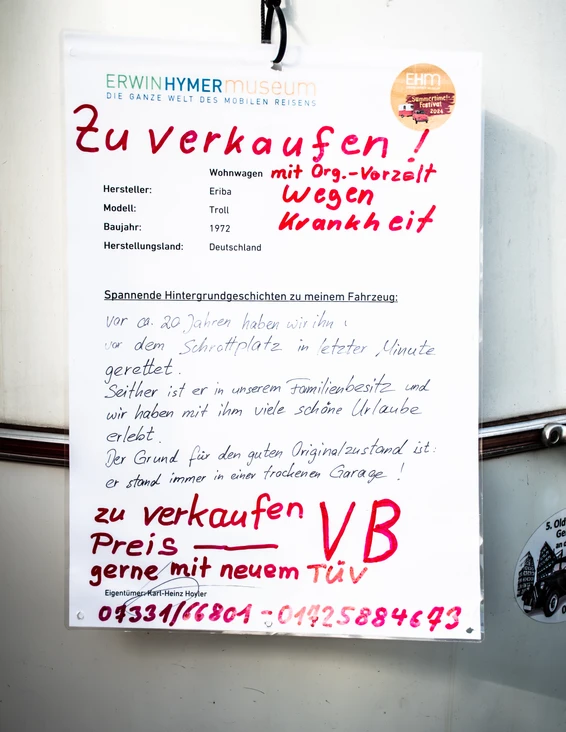 ERWINHYMERmuseum
DIE GANZE WELT DES MOBILEN REISENS
EHM
Summertime!
Festival
2024
Zu verkaufen!
Wohnwagen mit Org.-Vorzelt
Hersteller: Eriba wegen
Modell: Troll Krankheit
Baujahr: 1972
Herstellungsland: Deutschland
Spannende Hintergrundgeschichten zu meinem Fahrzeug:
vor ca. 20 Jahren haben wir ihn
vor dem Schrottplatz in letzter Minute
gerettet.
Seither ist er in unserem Familienbesitz und
wir haben mit ihm viele schöne Urlaube
erlebt.
Der Grund für den guten Originalzustand ist:
er stand immer in einer trockenen Garage!
zu verkaufen VB
Preis
gerne mit neuem TÜV
Eigentümer: Karl-Heinz Hoyler
07331/66801 - 01725884673
5. Old